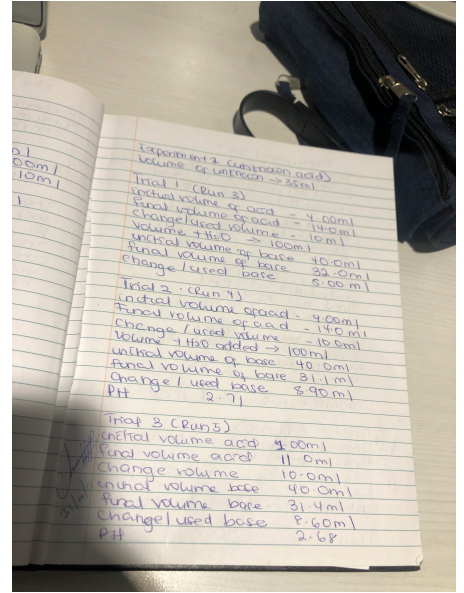 0.1
00ml
10ml
1
Experiment 2 (unknown acid)
volume of unknown -> 35ml
Trial 1 (Run 3)
initial volume of acid - 4.00ml
final volume of acid - 14.0ml
change/used volume - 10ml
volume + H2O -> 100ml
initial volume of base 40.0ml
final volume of base 32.0ml
change/used base 8.00ml
Trial 2. (Run 4)
initial volume of acid - 4.00ml
final volume of acid - 14.0ml
change/used volume - 10.0ml
volume + H2O added -> 100ml
initial volume of base 40.0ml
final volume of base 31.1ml
change/used base 8.90ml
PH 2.71
Trial 3 (Run 5)
initial volume acid .00ml
final volume acid 11.0ml
change volume 10.0ml
initial volume base 40.0ml
final volume base 31.4ml
change/used base 8.60ml
PH 2.68